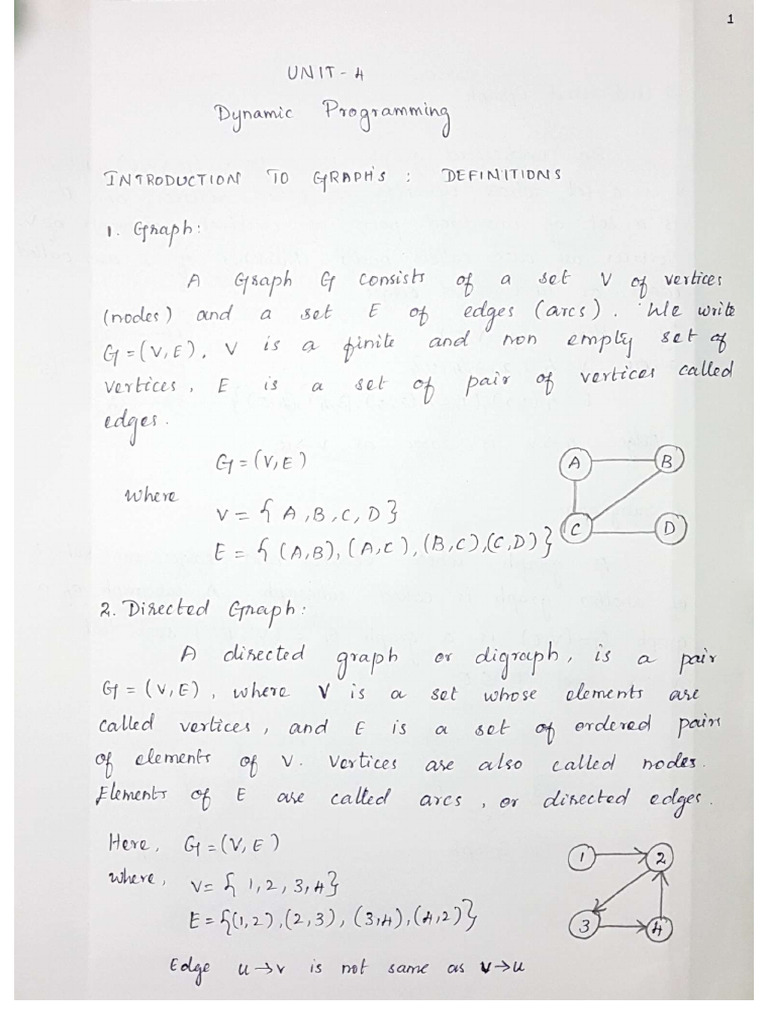 1
UNIT-4
Dynamic Programming
INTRODUCTION TO GRAPH'S : DEFINITIONS
1. Graph:
A Graph G consists of a set V of vertices
(nodes) and a set E of edges (arcs). We write
G=(V,E). V is a finite and non empty set of
vertices, E is a set of pair of vertices called
edges.
G=(V,E)
where
V = { A,B,C,D}
E = { (A,B), (A,C), (B,C),(C,D)}
A B
C D
2. Directed Graph:
A directed graph or digraph, is a pair
G = (V,E), where V is a set whose elements are
called vertices, and E is a set of ordered pairs
of elements of V. Vertices are also called nodes.
Elements of E are called arcs, or directed edges.
Here, G=(V,E)
where, V={ 1,2,3,4}
E={(1,2),(2,3), (3,4),(4,2)}
1 2
3 4
Edge u→v is not same as v→u